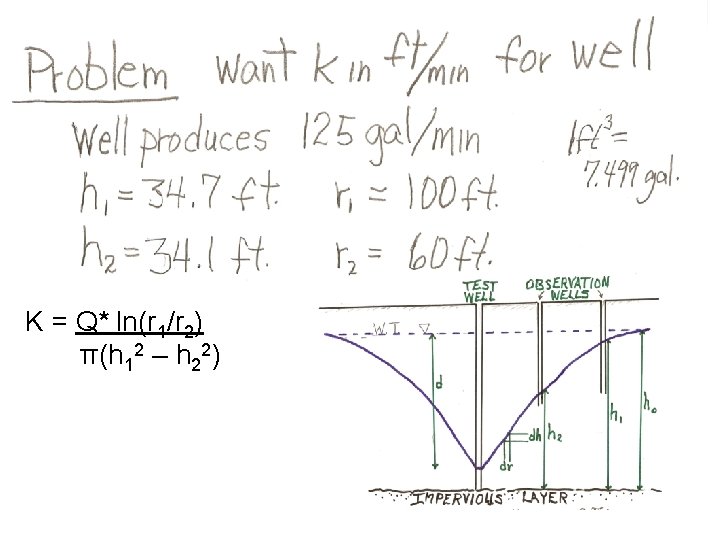 Problem want k in ft/min for well
Well produces 125 gal/min 1ft³=
7.499 gal.
h₁ = 34.7 ft. r₁ = 100 ft.
h₂ = 34.1 ft. r₂ = 60 ft.
K = Q* ln(r₁/r₂)
π(h₁² – h₂²)
TEST WELL
OBSERVATION WELLS
W.T.
d
dh
h₂
dr
h₁
h₀
IMPERVIOUS LAYER